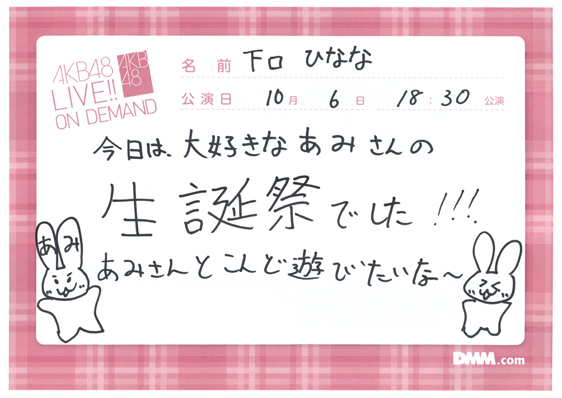 AKB48
LIVE!!
ON DEMAND
AKB
48
名 前 下口 ひなな
公演日 10月 6日 18:30 公演
今日は、大好きなあみさんの
生誕祭でした!!!
あみ
あみさんとこんど遊びたいな〜
DMM.com